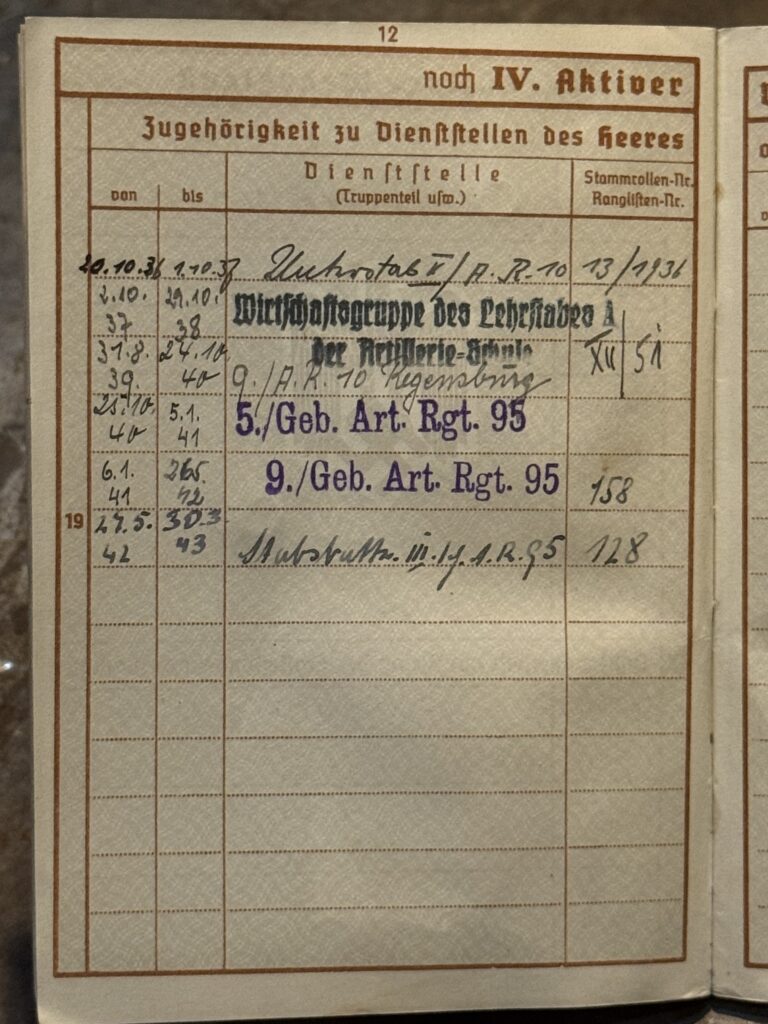 12
noch IV. Aktiver
Zugehörigkeit zu Dienststellen des Heeres
von
bis
Dienststelle
(Truppenteil usw.)
Stammrollen-Nr.
Ranglisten-Nr.
20.10.36 1.10.37 II/A.R.10 13/1936
2.10. 29.10. Wirtschaftsgruppe des Lehrstabes A
37 38
31.8. 24.10. der Artillerie-Schule XII/51
39. 40 9./A.R. 10 Regensburg
25.10. 5.1. 5./Geb. Art. Rgt. 95
40 41
6.1. 26.5. 9./Geb. Art. Rgt. 95 158
41 42
19 27.5. 30.3.
42 43 Stabsbattr. III./ 95 128